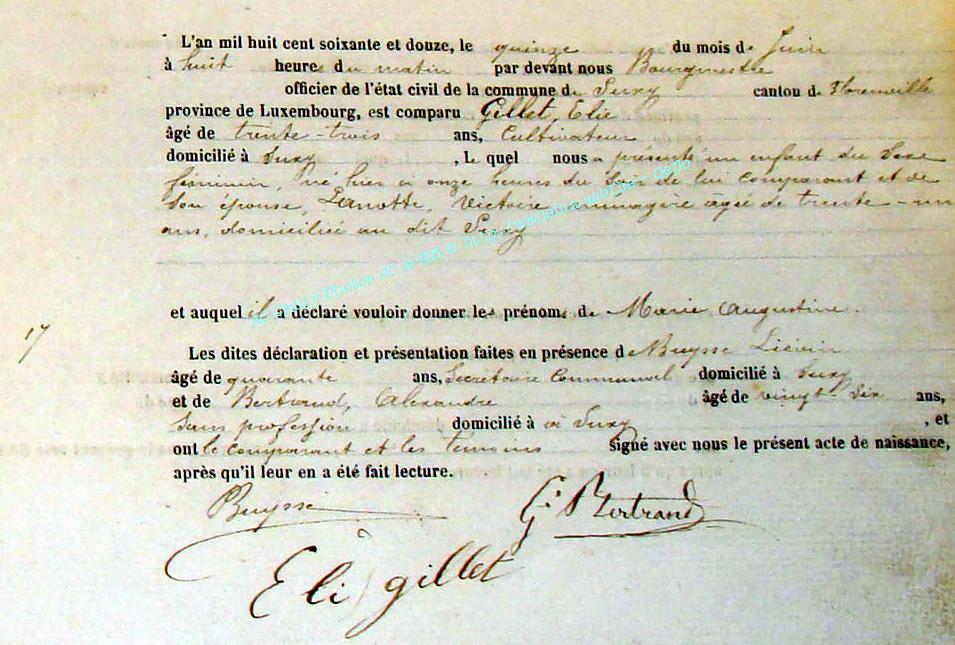 L'an mil huit cent soixante et douze, le quinze du mois de Juin
à huit heures du matin par devant nous Bourgmestre
officier de l'état civil de la commune de Suxy canton de Florenville
province de Luxembourg, est comparu Gillet, Elie
âgé de trente-trois ans, Cultivateur
domicilié à Suxy, Le quel nous a présenté un enfant du Sexe
féminin, né hier a onze heures du Soir de lui comparant et de
Son épouse, Lanotte, Victoire ménagère agée de trente-un
ans, domiciliée au dit Suxy
et auquel il a déclaré vouloir donner les prénoms de Marie Augustine.
17
Les dites déclaration et présentation faites en présence de Buysse Liévin
âgé de quarante ans, Secrétaire Communal domicilié à Suxy
et de Bertrand, Alexandre âgé de vingt-Six ans,
Sans profession domicilié à a Suxy, et
ont le comparant et les témoins signé avec nous le présent acte de naissance,
après qu'il leur en a été fait lecture.
Buysse
Bertrand
Eli gillet